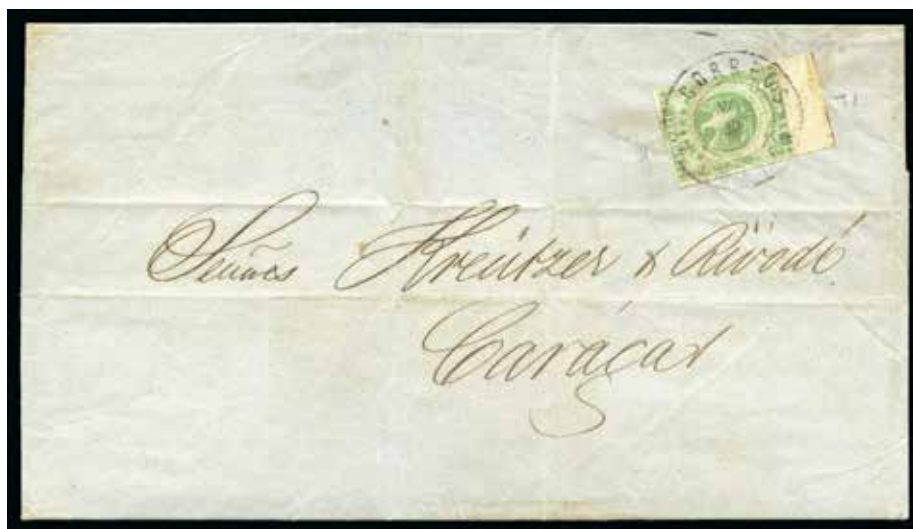 CORREOS
Señores Kreützer & Rivodó
Carácas